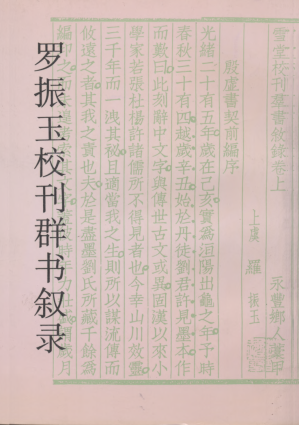 罗振玉校刊群书叙录
雪堂校刊羣書敘錄卷上
永豐鄉人藁
上虞 羅振玉
殷虛書契前編序
光緒二十有五年歲在己亥實爲洹陽出龜之年予時
春秋三十有四越歲辛丑始於丹徒劉君許見墨本作
而歎曰此刻辭中文字與傳世古文或異固漢以來小
學家若張杜楊許諸儒所不得見者也今幸山川效靈
三千年而一洩其祕且適當我之生則所以謀流傳而
攸遠之者其我之責也夫於是盡墨劉氏所藏千餘爲
編印